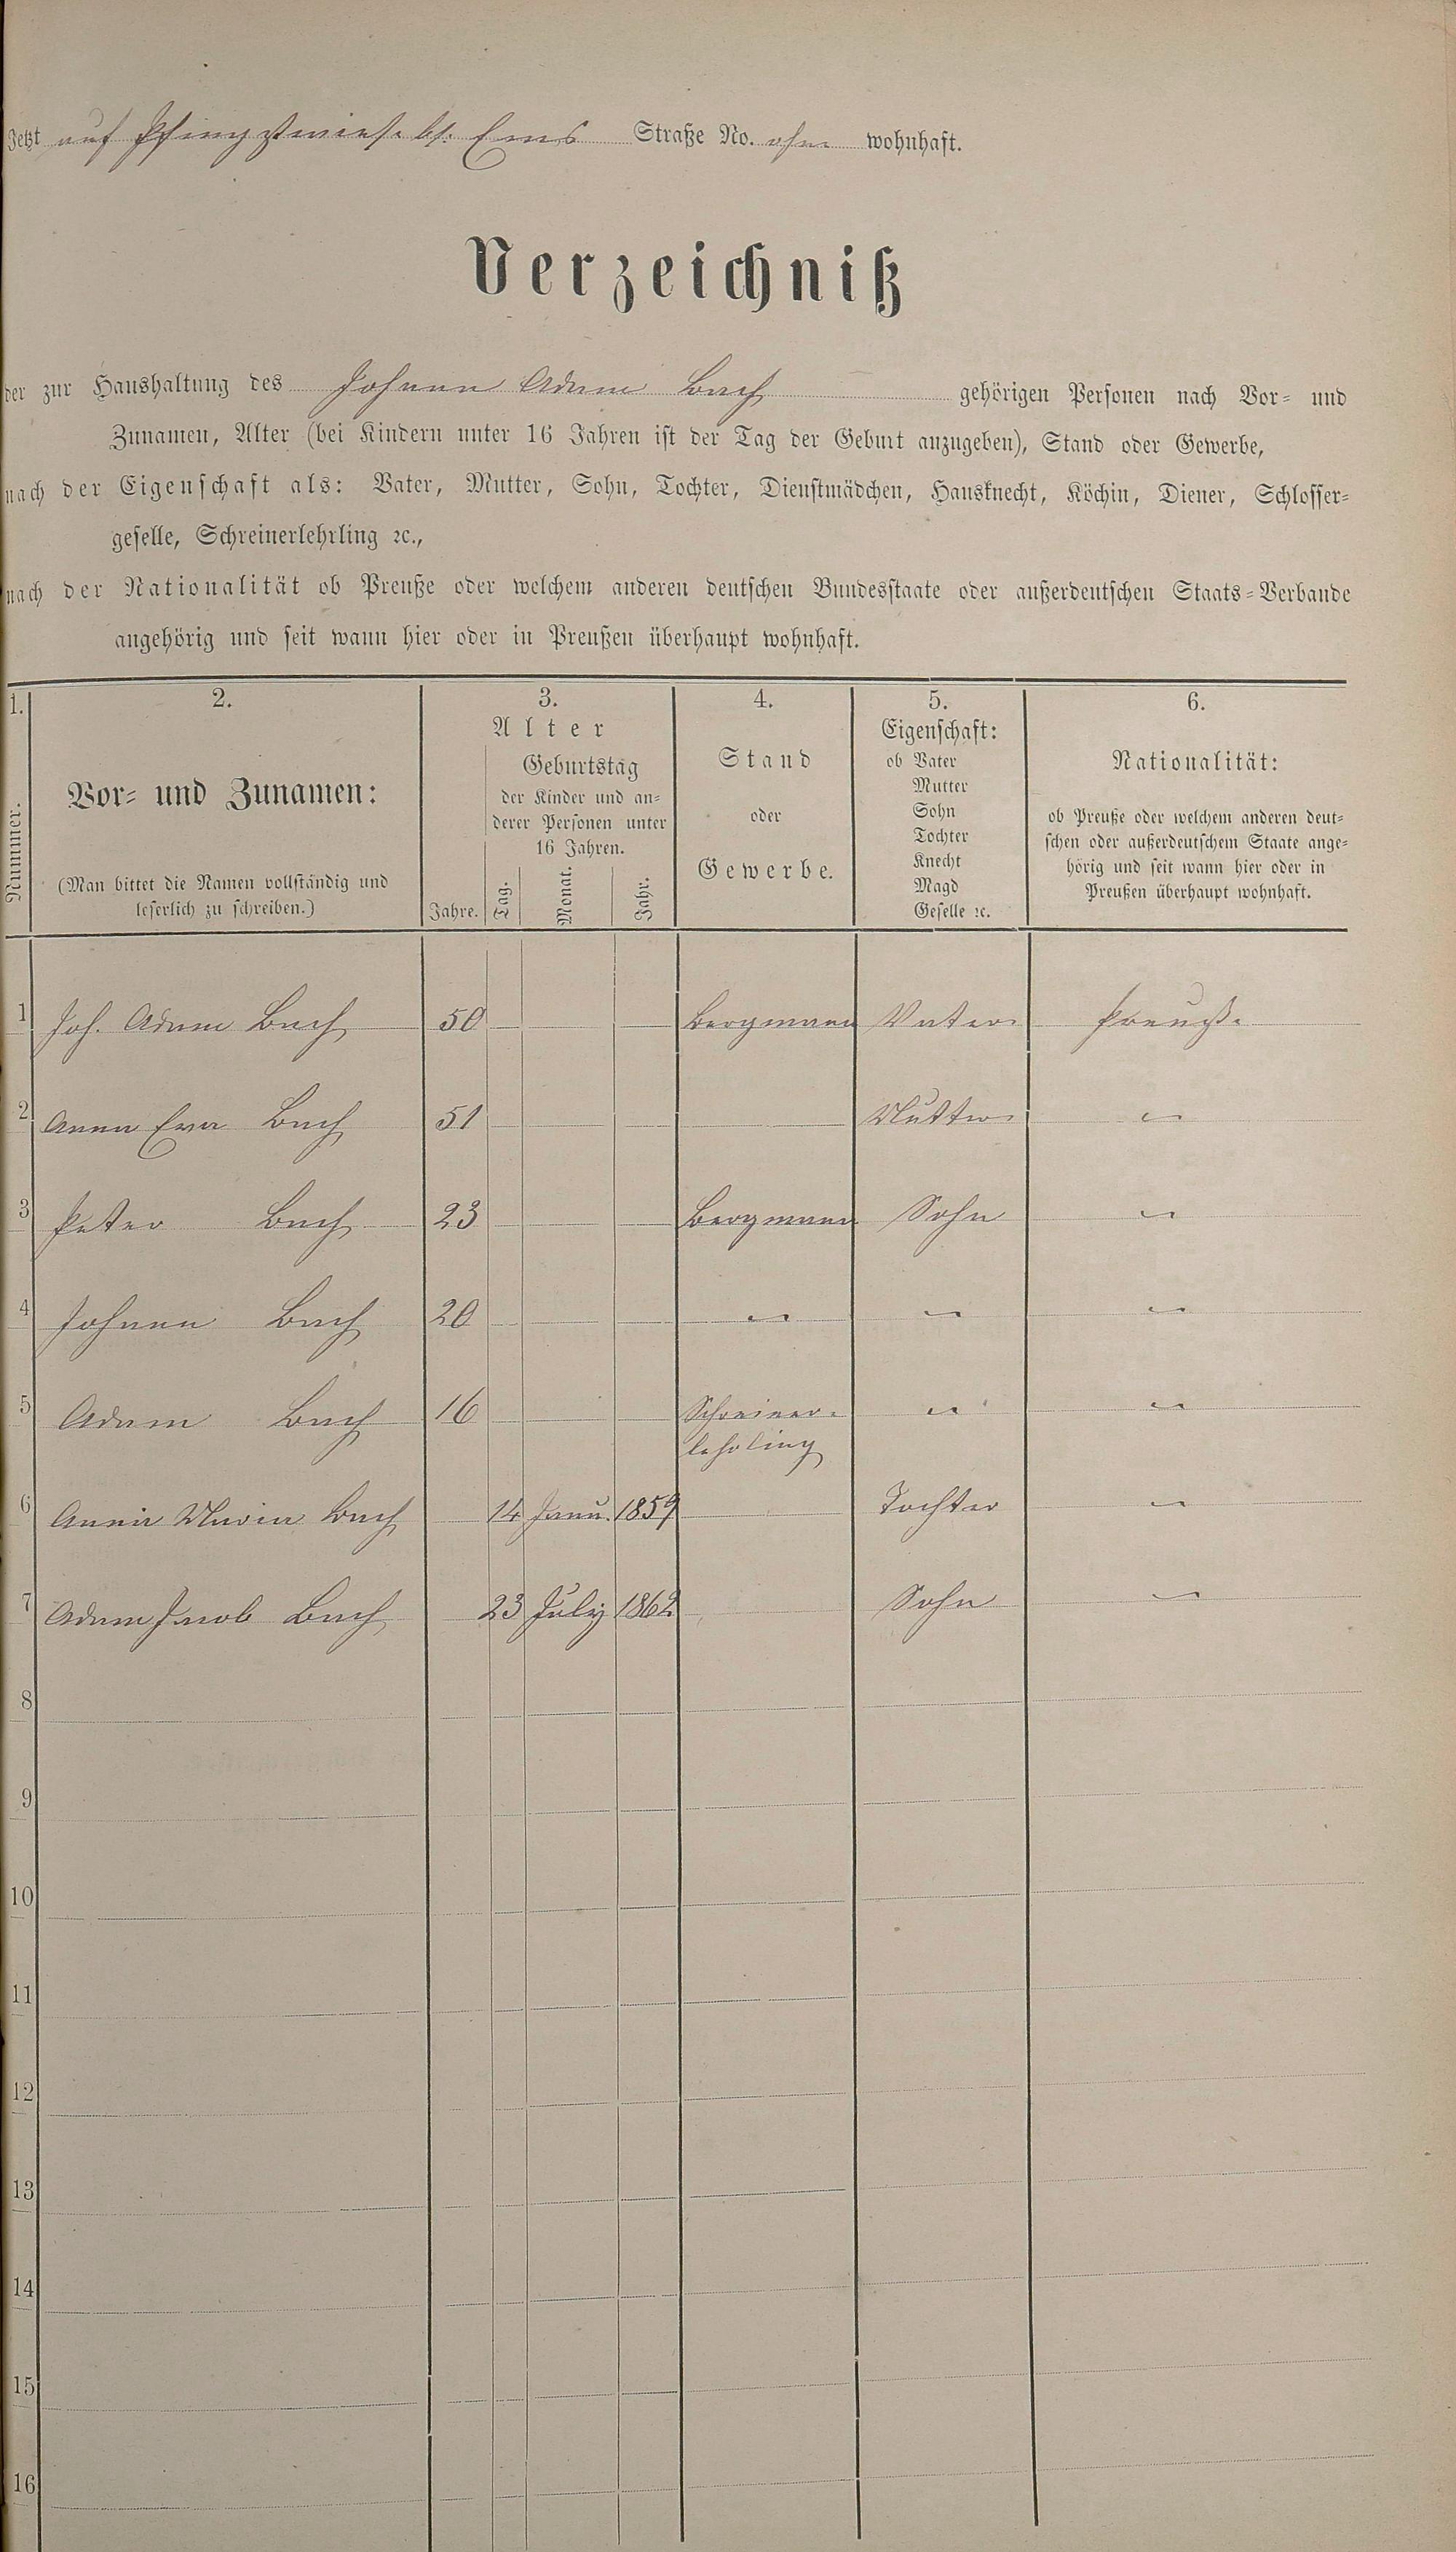 Jetzt auf Pfingstwiese bei Ems Straße No. ohne wohnhaft.
Verzeichniß
der zur Haushaltung des Johann Adam Bach gehörigen Personen nach Vor- und
Zunamen, Alter (bei Kindern unter 16 Jahren ist der Tag der Geburt anzugeben), Stand oder Gewerbe,
nach der Eigenschaft als: Vater, Mutter, Sohn, Tochter, Dienstmädchen, Hausknecht, Köchin, Diener, Schlosser-
geselle, Schreinerlehrling ꝛc.,
nach der Nationalität ob Preuße oder welchem anderen deutschen Bundesstaate oder außerdeutschen Staats-Verbande
angehörig und seit wann hier oder in Preußen überhaupt wohnhaft.
1.
Nummer.
2.
Vor- und Zunamen:
(Man bittet die Namen vollständig und
leserlich zu schreiben.)
3.
Alter
Jahre.
Geburtstag
der Kinder und an-
derer Personen unter
16 Jahren.
Tag. Monat. Jahr.
4.
Stand
oder
Gewerbe.
5.
Eigenschaft:
ob Vater
Mutter
Sohn
Tochter
Knecht
Magd
Geselle ꝛc.
6.
Nationalität:
ob Preuße oder welchem anderen deut-
schen oder außerdeutschem Staate ange-
hörig und seit wann hier oder in
Preußen überhaupt wohnhaft.
1 Joh. Adam Bach 50 Bergmann Vater Preuße
2 Anna Eva Bach 51 Mutter "
3 Peter Bach 23 Bergmann Sohn "
4 Johann Bach 20 " " "
5 Adam Bach 16 Schreiner- " "
lehrling
6 Anna Maria Bach 14 Janu. 1859 Tochter "
7 Adam Jacob Bach 23 July 1862 Sohn "
8
9
10
11
12
13
14
15
16